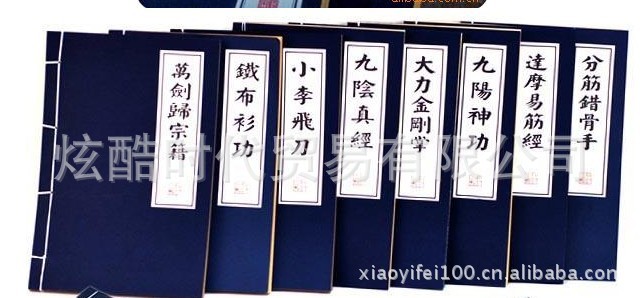 萬劍歸宗籍
鐵布衫功
小李飛刀
九陰真經
大力金剛掌
九陽神功
達摩易筋經
分筋錯骨手
炫酷时代贸易有限公司
xiaoyifei100.cn.alibaba.com